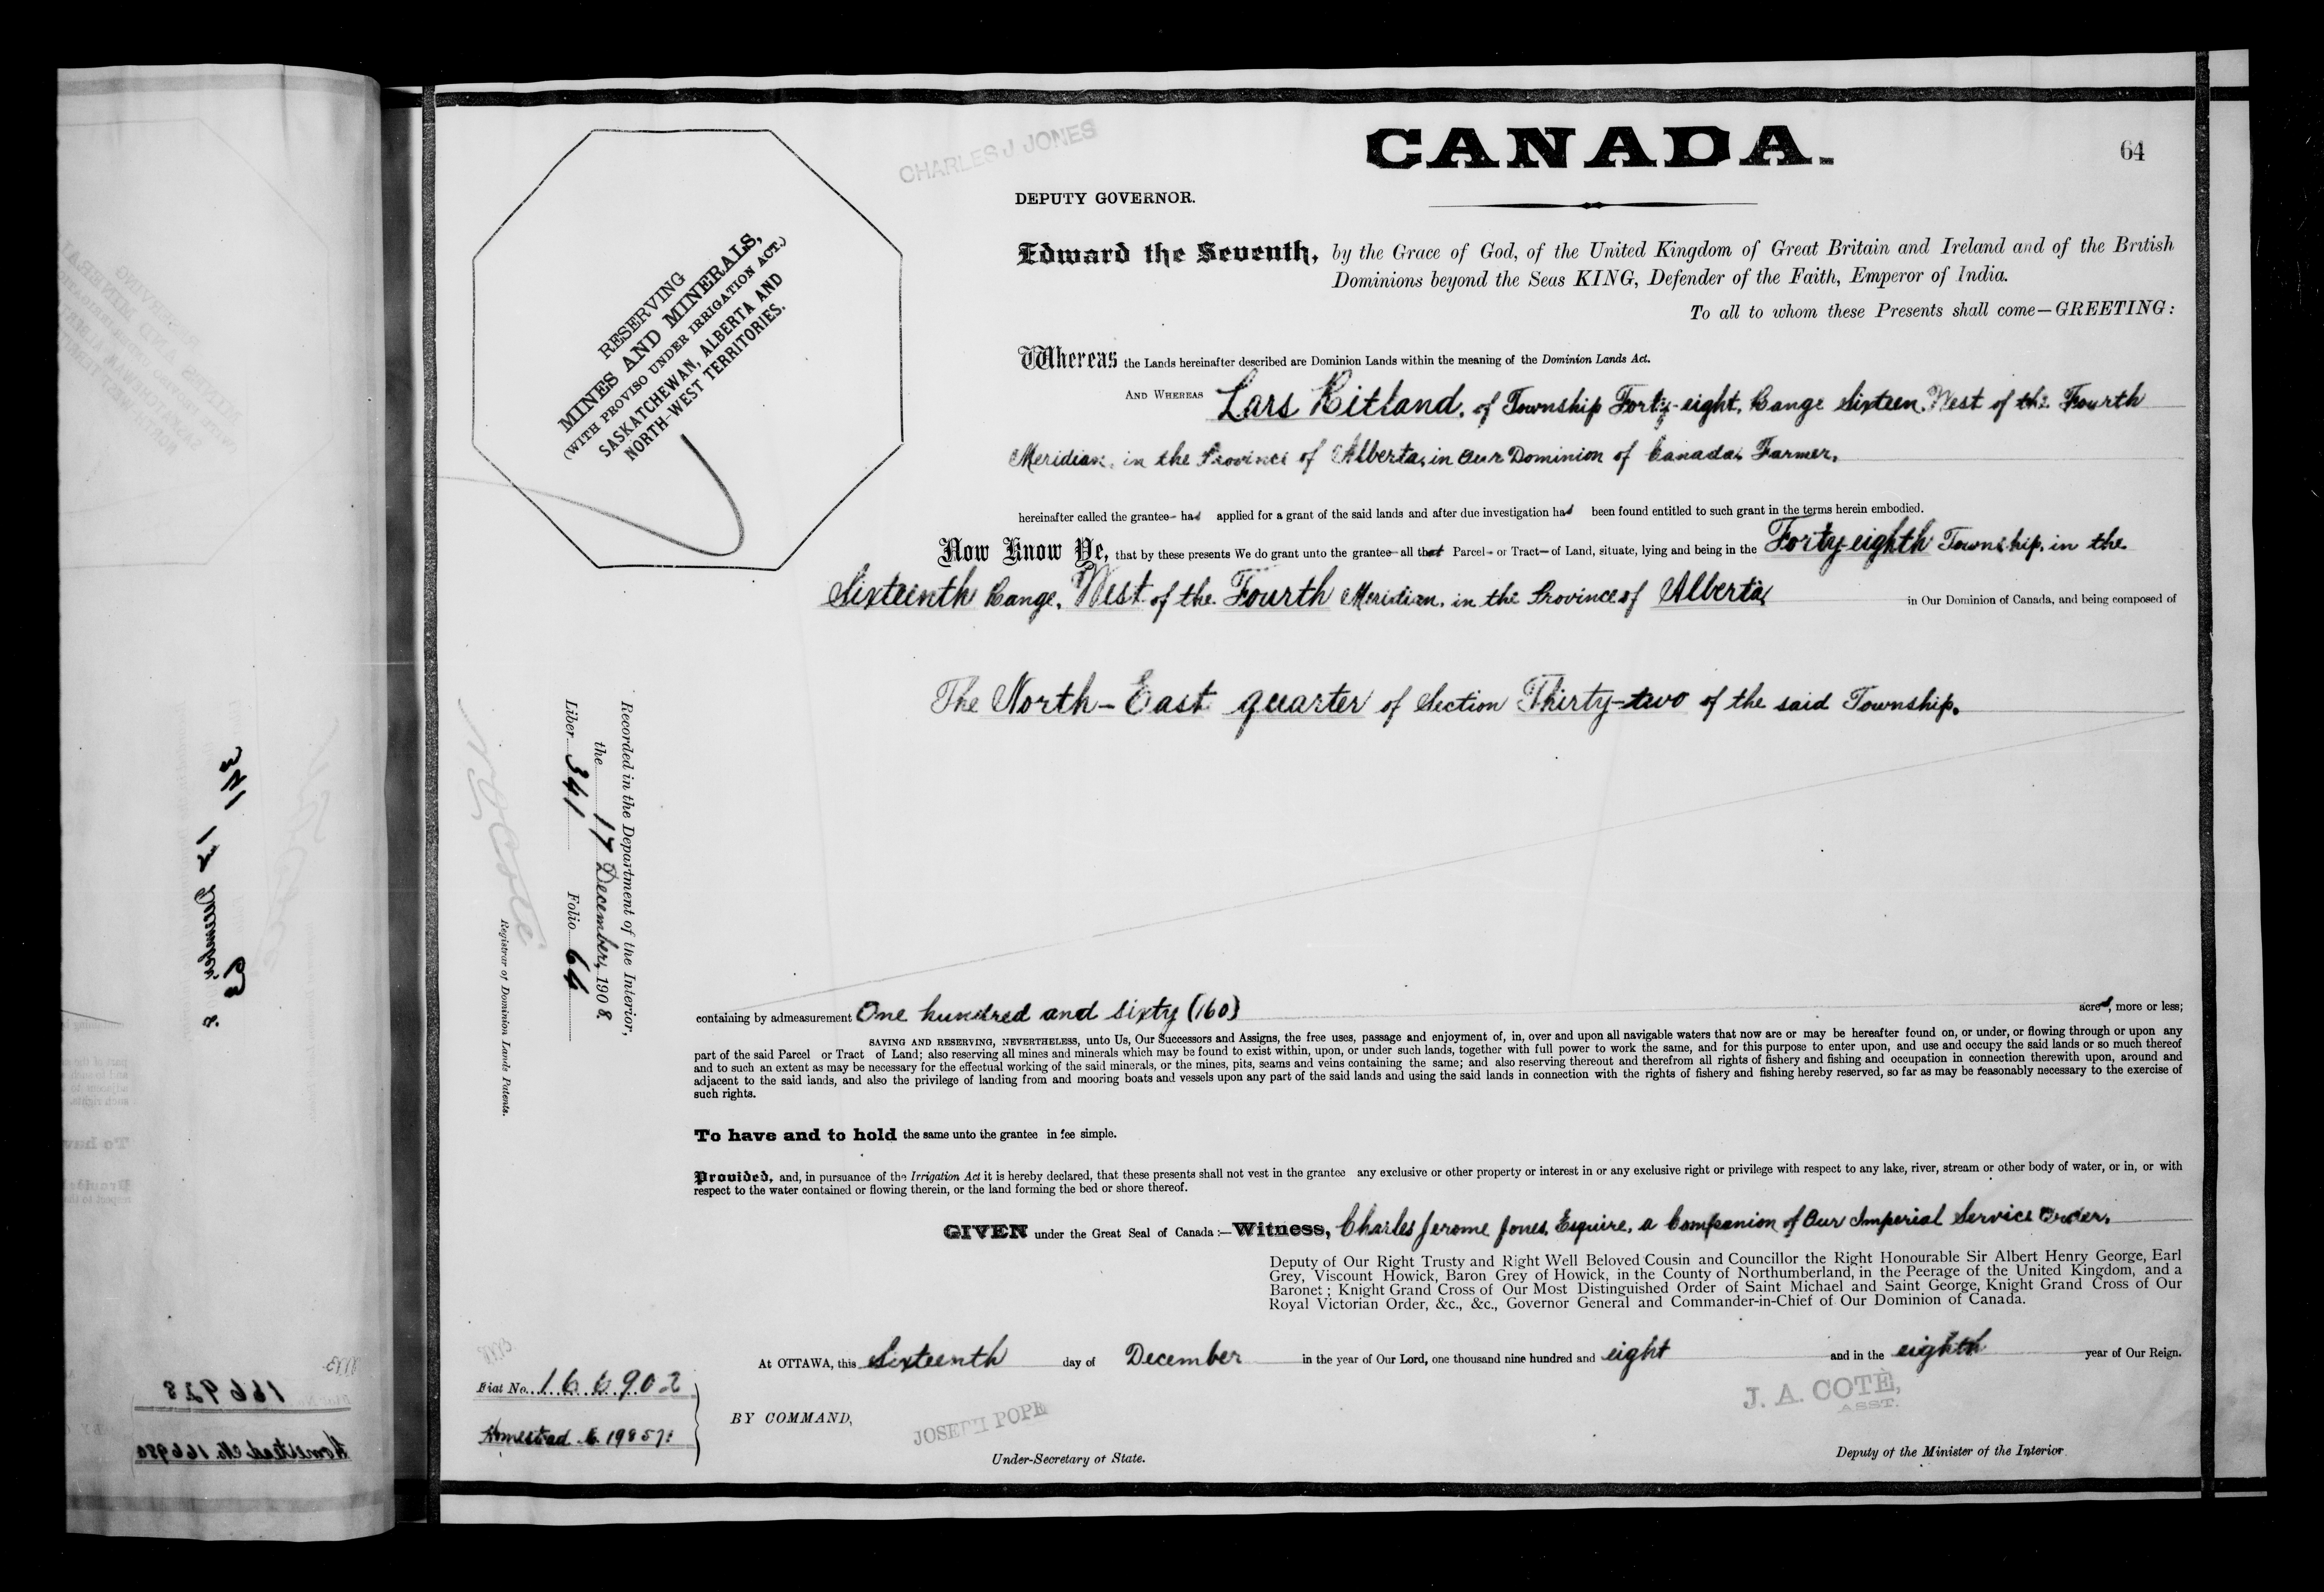 CANADA.
64
CHARLES J JONES
DEPUTY GOVERNOR.
RESERVING
MINES AND MINERALS,
(WITH PROVISO UNDER IRRIGATION ACT.)
SASKATCHEWAN, ALBERTA AND
NORTH-WEST TERRITORIES.
Edward the Seventh, by the Grace of God, of the United Kingdom of Great Britain and Ireland and of the British
Dominions beyond the Seas KING, Defender of the Faith, Emperor of India.
To all to whom these Presents shall come—GREETING:
Whereas the Lands hereinafter described are Dominion Lands within the meaning of the Dominion Lands Act.
AND WHEREAS Lars Kitland, of Township Forty-eight, Range Sixteen, West of the Fourth
Meridian, in the Province of Alberta, in Our Dominion of Canada, Farmer,
hereinafter called the grantee had applied for a grant of the said lands and after due investigation had been found entitled to such grant in the terms herein embodied.
Now Know Ye, that by these presents We do grant unto the grantee all that Parcel or Tract of Land, situate, lying and being in the Forty-eighth Township, in the
Sixteenth Range, West of the Fourth Meridian, in the Province of Alberta, in Our Dominion of Canada, and being composed of
The North-East quarter of Section Thirty-two of the said Township.
containing by admeasurement One hundred and sixty (160) acres, more or less;
SAVING AND RESERVING, NEVERTHELESS, unto Us, Our Successors and Assigns, the free uses, passage and enjoyment of, in, over and upon all navigable waters that now are or may be hereafter found on, or under, or flowing through or upon any
part of the said Parcel or Tract of Land; also reserving all mines and minerals which may be found to exist within, upon, or under such lands, together with full power to work the same, and for this purpose to enter upon, and use and occupy the said lands or so much thereof
and to such an extent as may be necessary for the effectual working of the said minerals, or the mines, pits, seams and veins containing the same; and also reserving thereout and therefrom all rights of fishery and fishing and occupation in connection therewith upon, around and
adjacent to the said lands, and also the privilege of landing from and mooring boats and vessels upon any part of the said lands and using the said lands in connection with the rights of fishery and fishing hereby reserved, so far as may be reasonably necessary to the exercise of
such rights.
To have and to hold the same unto the grantee in fee simple.
Provided, and, in pursuance of the Irrigation Act it is hereby declared, that these presents shall not vest in the grantee any exclusive or other property or interest in or any exclusive right or privilege with respect to any lake, river, stream or other body of water, or in, or with
respect to the water contained or flowing therein, or the land forming the bed or shore thereof.
GIVEN under the Great Seal of Canada :—Witness, Charles Jerome Jones, Esquire, a Companion of Our Imperial Service Order,
Deputy of Our Right Trusty and Right Well Beloved Cousin and Councillor the Right Honourable Sir Albert Henry George, Earl
Grey, Viscount Howick, Baron Grey of Howick, in the County of Northumberland, in the Peerage of the United Kingdom, and a
Baronet; Knight Grand Cross of Our Most Distinguished Order of Saint Michael and Saint George, Knight Grand Cross of Our
Royal Victorian Order, &c., &c., Governor General and Commander-in-Chief of Our Dominion of Canada.
At OTTAWA, this Sixteenth day of December in the year of Our Lord, one thousand nine hundred and eight and in the eighth year of Our Reign.
BY COMMAND,
JOSEPH POPE
Under-Secretary of State.
J. A. COTÉ,
ASST.
Deputy of the Minister of the Interior.
Recorded in the Department of the Interior,
the 17 December, 1908.
Liber 341 Folio 64
N O Coté
Registrar of Dominion Lands Patents.
Fiat No. 166902
Homestead 198571